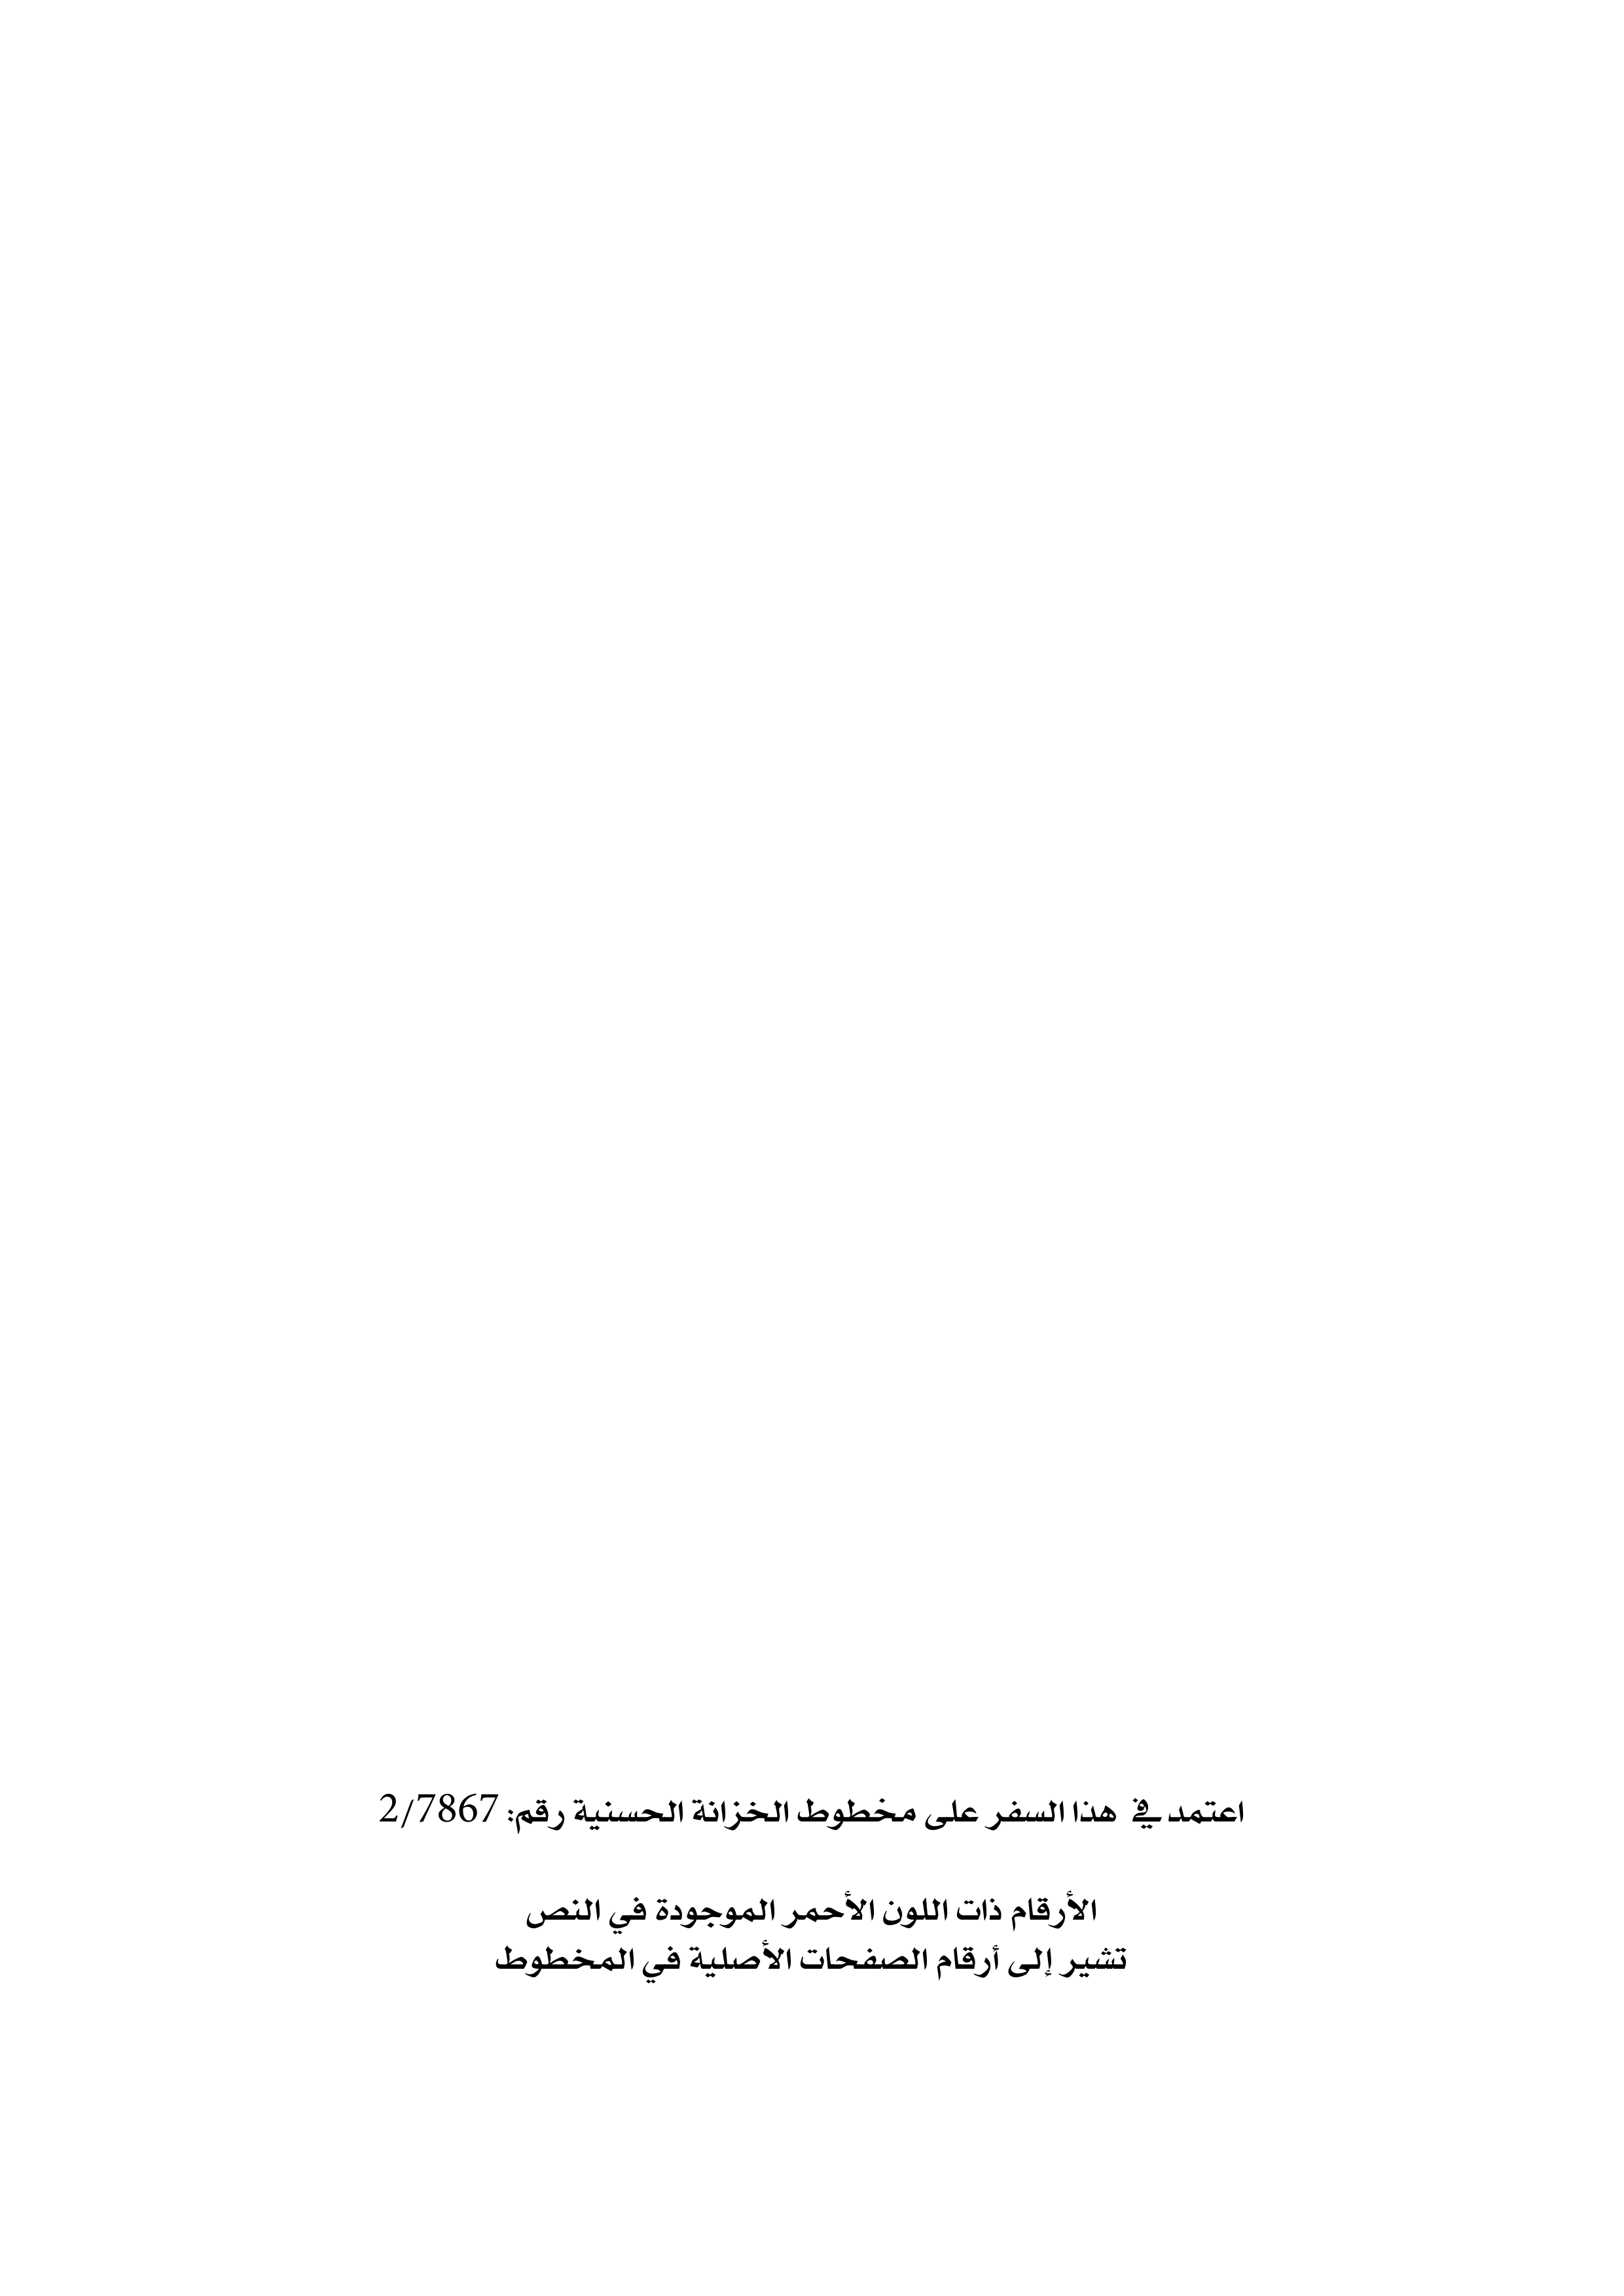 اعتمد في هذا السفر على مخطوط الخزانة الحسنية رقم: 2/7867
الأرقام ذات اللون الأحمر الموجودة في النص
تشير إلى أرقام الصفحات الأصلية في المخطوط